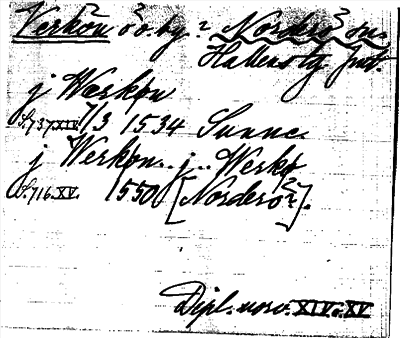 Verkön ö o. by? Norderö sn.
Hallen tg Jmt.
j Werkön
S. 737. XIV. 7/3 1534 Sunne.
j Werkön .. j .. Werkö
S. 716. XV. 1550 [Norderö?].
Dipl. norv. XIV o. XV